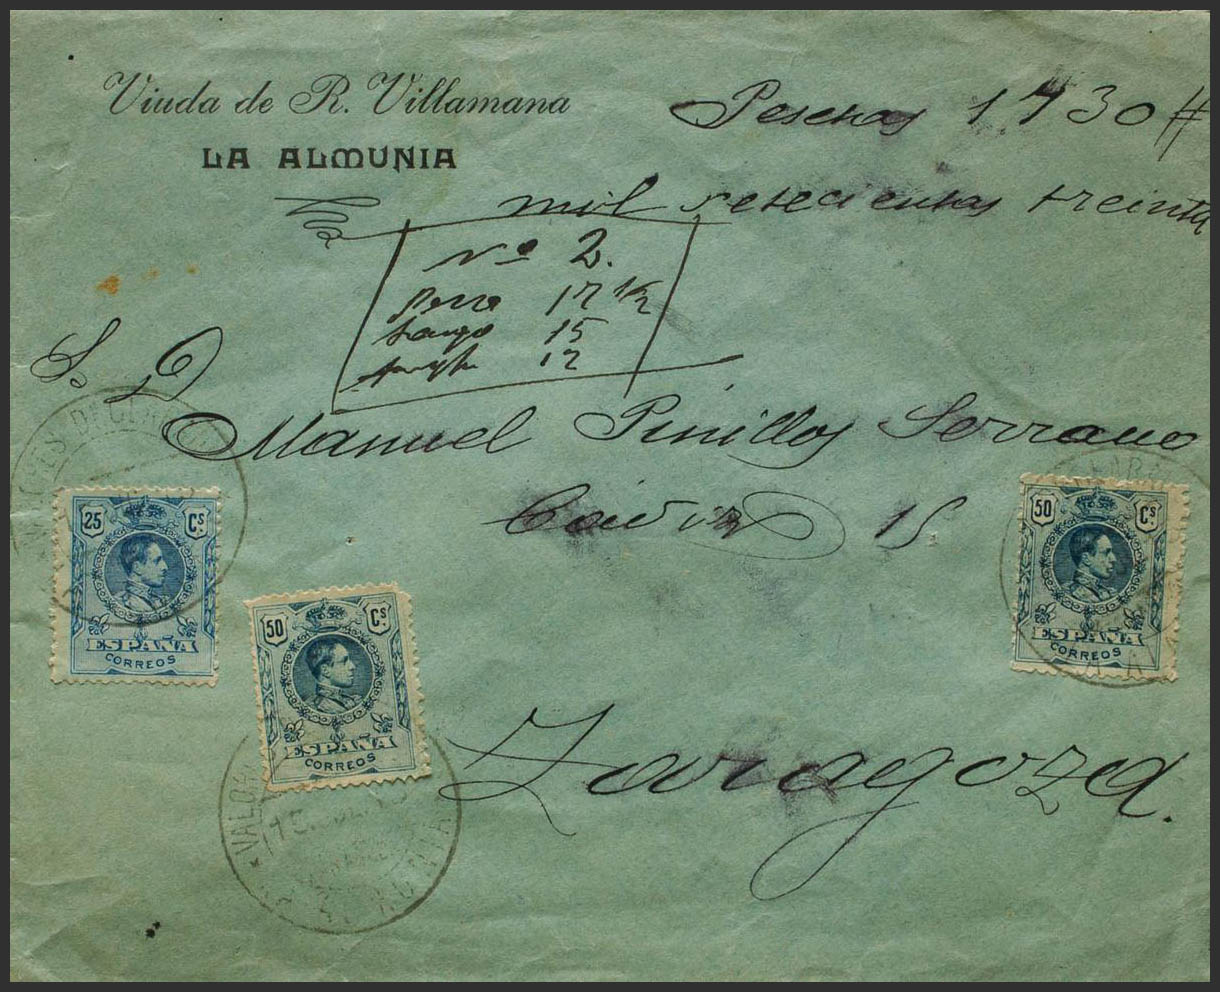 Viuda de R. Villamana
LA ALMUNIA
Pesetas 1730#
mil setecientas treinta
Nº 2.
peso 17 1/2
largo 15
ancho 12
S. D
Manuel Pinillos Serrano
15
Zaragoza.
25 Cs.
ESPAÑA
CORREOS
50 Cs.
ESPAÑA
CORREOS
50 Cs.
ESPAÑA
CORREOS